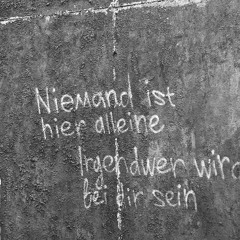 Niemand ist
hier alleine
Irgendwer wird
bei dir sein